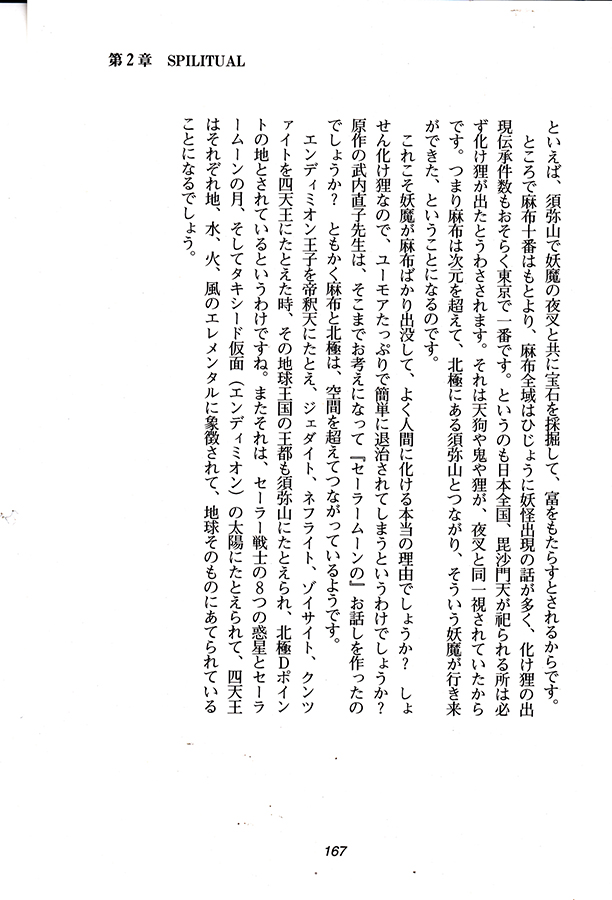 第2章 SPILITUAL
といえば、須弥山で妖魔の夜叉と共に宝石を採掘して、富をもたらすとされるからです。
ところで麻布十番はもとより、麻布全域はひじょうに妖怪出現の話が多く、化け狸の出
現伝承件数もおそらく東京で一番です。というのも日本全国、毘沙門天が祀られる所は必
ず化け狸が出たとうわさされます。それは天狗や鬼や狸が、夜叉と同一視されていたから
です。つまり麻布は次元を超えて、北極にある須弥山とつながり、そういう妖魔が行き来
ができた、ということになるのです。
これこそ妖魔が麻布ばかり出没して、よく人間に化ける本当の理由でしょうか? しょ
せん化け狸なので、ユーモアたっぷりで簡単に退治されてしまうというわけでしょうか?
原作の武内直子先生は、そこまでお考えになって『セーラームーンの』お話しを作ったの
でしょうか? ともかく麻布と北極は、空間を超えてつながっているようです。
エンディミオン王子を帝釈天にたとえ、ジェダイト、ネフライト、ゾイサイト、クンツ
ァイトを四天王にたとえた時、その地球王国の王都も須弥山にたとえられ、北極Dポイン
トの地とされているというわけですね。またそれは、セーラー戦士の8つの惑星とセーラ
ームーンの月、そしてタキシード仮面(エンディミオン)の太陽にたとえられて、四天王
はそれぞれ地、水、火、風のエレメンタルに象徴されて、地球そのものにあてられている
ことになるでしょう。
167